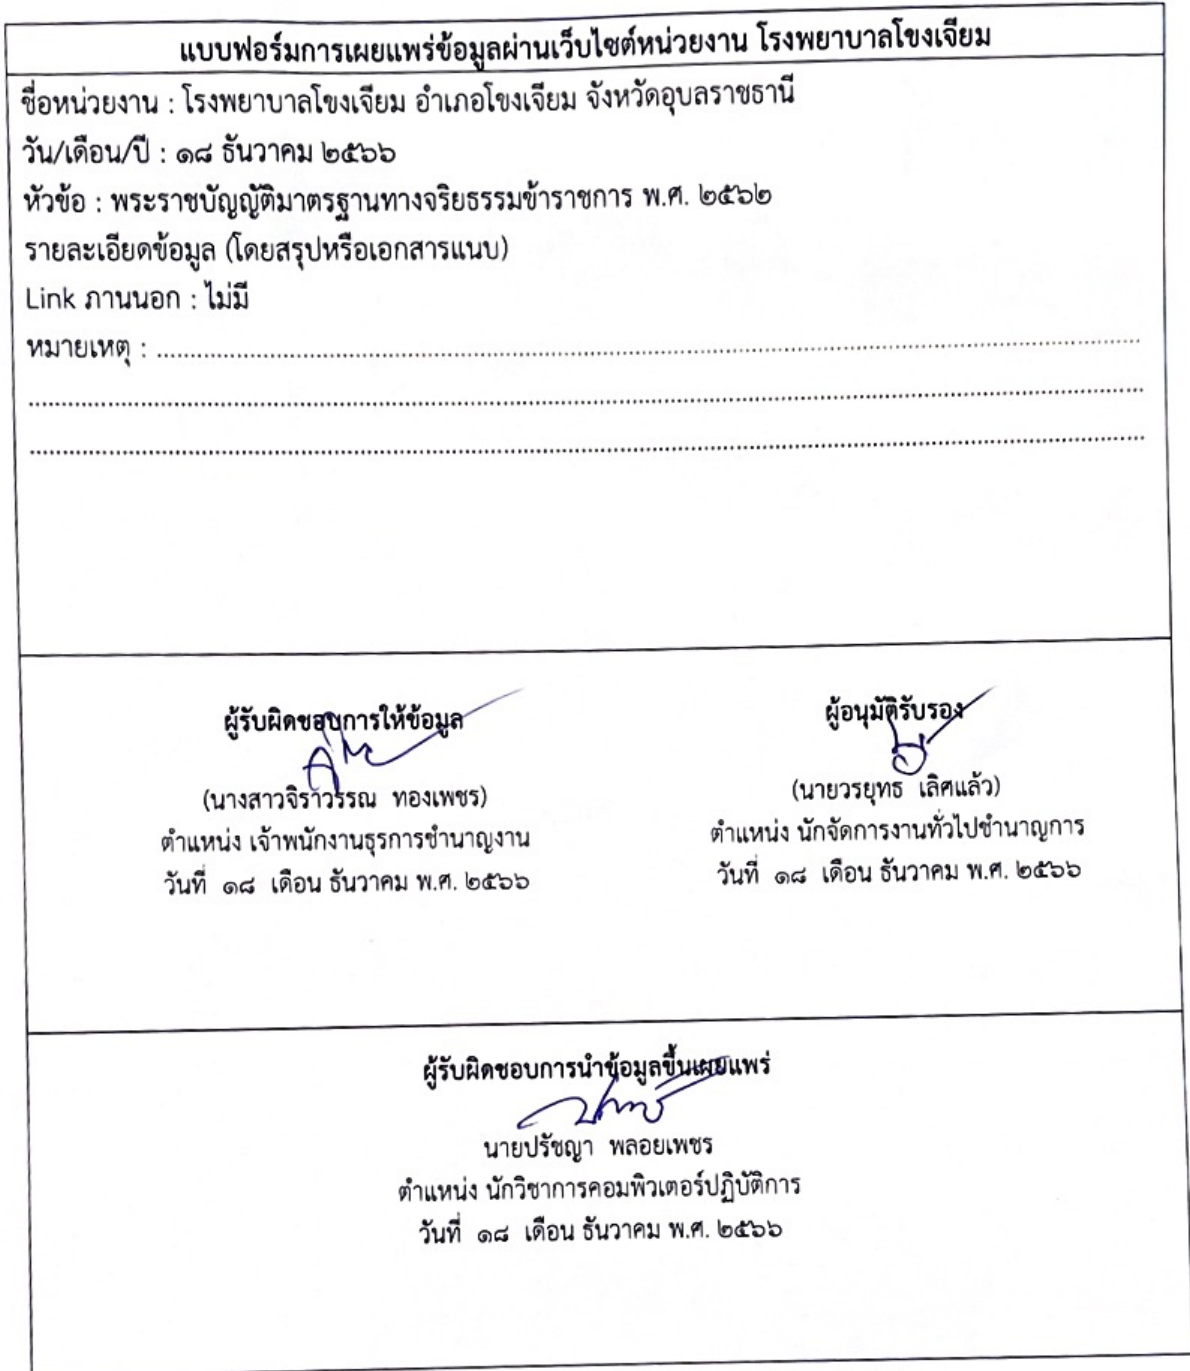 แบบฟอร์มการเผยแพร่ข้อมูลผ่านเว็บไซต์หน่วยงาน โรงพยาบาลโขงเจียม
ชื่อหน่วยงาน : โรงพยาบาลโขงเจียม อำเภอโขงเจียม จังหวัดอุบลราชธานี
วัน/เดือน/ปี : ๑๘ ธันวาคม ๒๕๖๖
หัวข้อ : พระราชบัญญัติมาตรฐานทางจริยธรรมข้าราชการ พ.ศ. ๒๕๖๒
รายละเอียดข้อมูล (โดยสรุปหรือเอกสารแนบ)
Link ภานนอก : ไม่มี
หมายเหตุ :
ผู้รับผิดชอบการให้ข้อมูล
(นางสาวจิราวรรณ ทองเพชร)
ตำแหน่ง เจ้าพนักงานธุรการชำนาญงาน
วันที่ ๑๘ เดือน ธันวาคม พ.ศ. ๒๕๖๖
ผู้อนุมัติรับรอง
(นายวรยุทธ เลิศแล้ว)
ตำแหน่ง นักจัดการงานทั่วไปชำนาญการ
วันที่ ๑๘ เดือน ธันวาคม พ.ศ. ๒๕๖๖
ผู้รับผิดชอบการนำข้อมูลขึ้นเผยแพร่
นายปรัชญา พลอยเพชร
ตำแหน่ง นักวิชาการคอมพิวเตอร์ปฏิบัติการ
วันที่ ๑๘ เดือน ธันวาคม พ.ศ. ๒๕๖๖